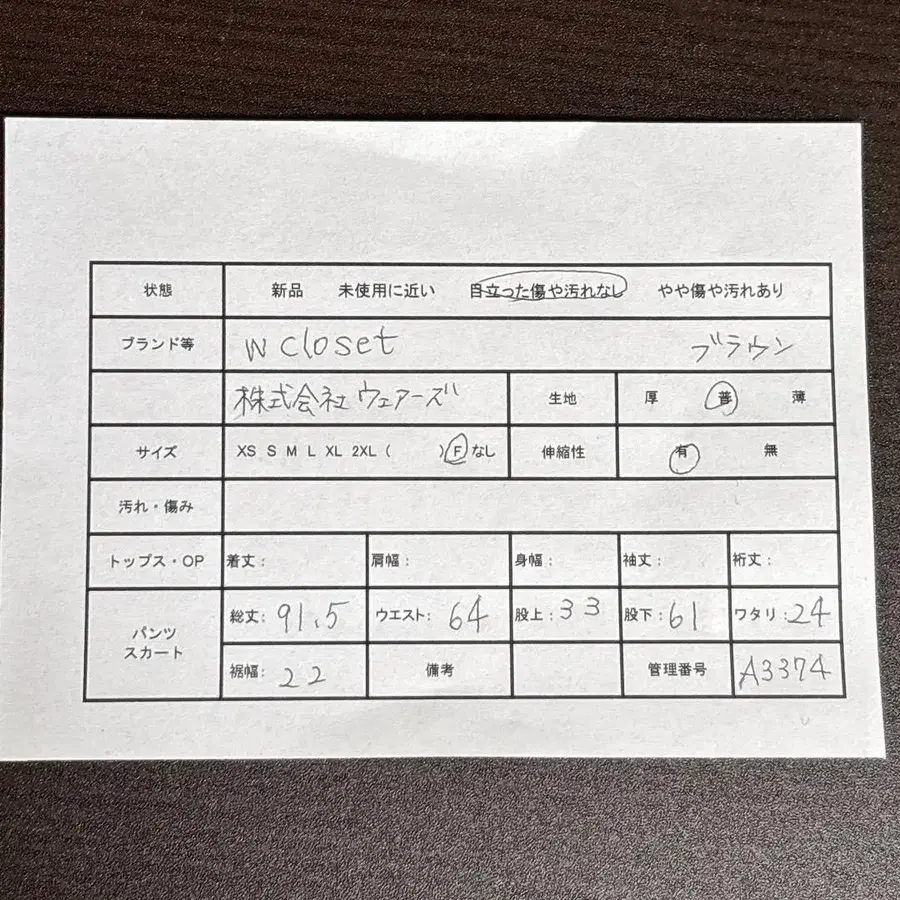 状態 新品 未使用に近い 目立った傷や汚れなし やや傷や汚れあり
ブランド等 w closet ブラウン
株式会社ウェアーズ 生地 厚 普 薄
サイズ XS S M L XL 2XL ( ) F なし 伸縮性 有 無
汚れ・傷み
トップス・OP 着丈: 肩幅: 身幅: 袖丈: 裄丈:
パンツ スカート 総丈: 91.5 ウエスト: 64 股上: 33 股下: 61 ワタリ: 24
裾幅: 22 備考 管理番号 A3374